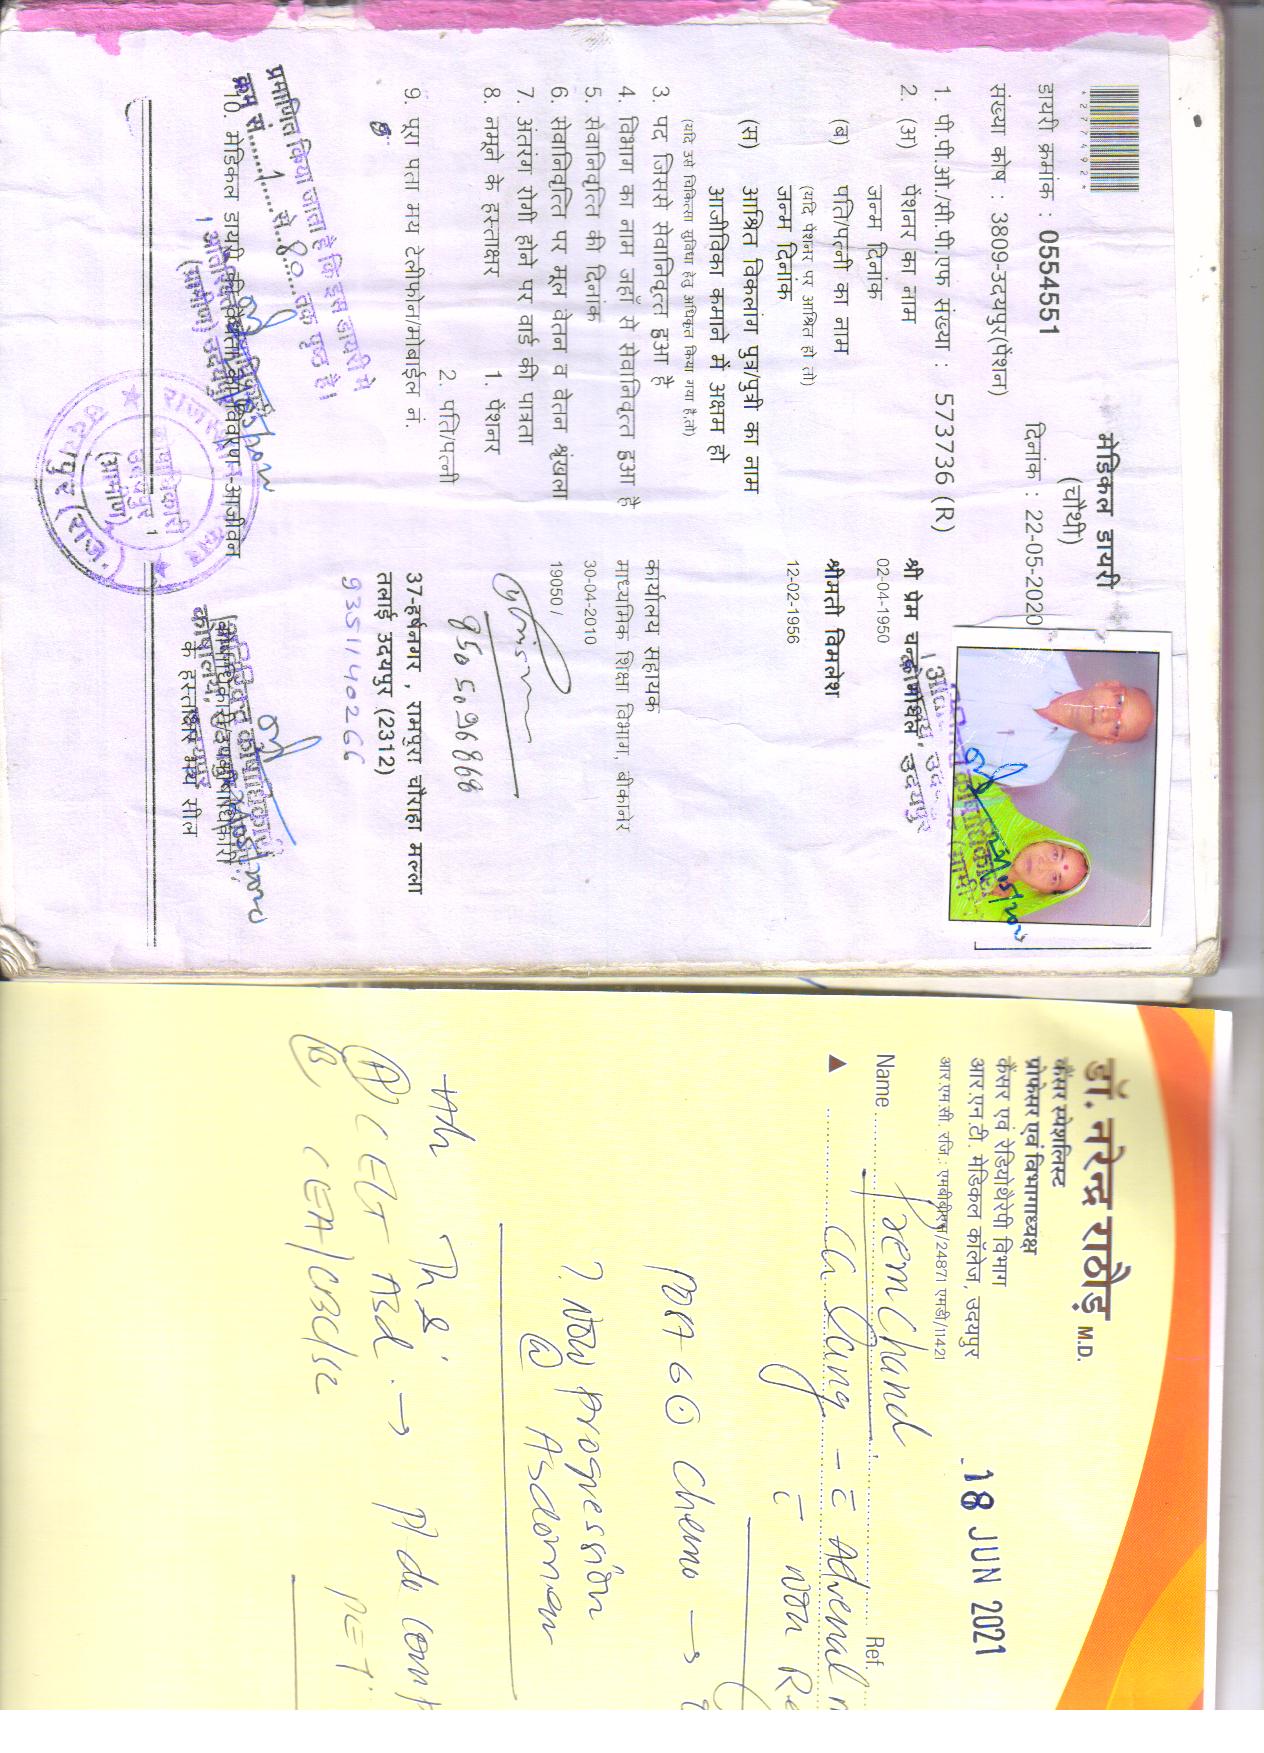 मेडिकल डायरी
(चौथी)
*277492*
डायरी क्रमांक : 0554551
दिनांक : 22-05-2020
संख्या कोष : 3809-उदयपुर(पेंशन)
1. पी.पी.ओ./सी.पी.एफ संख्या : 573736 (R)
2. (अ) पेंशनर का नाम श्री प्रेम चन्द
जन्म दिनांक 02-04-1950
(ब) पति/पत्नी का नाम श्रीमती विमलेश
(यदि पेंशनर पर आश्रित हो तो)
जन्म दिनांक 12-02-1956
(स) आश्रित विकलांग पुत्र/पुत्री का नाम
आजीविका कमाने में अक्षम हो
(यदि उसे चिकित्सा सुविधा हेतु अधिकृत किया गया है,तो)
3. पद जिससे सेवानिवृत्त हुआ है कार्यालय सहायक
4. विभाग का नाम जहाँ से सेवानिवृत्त हुआ है माध्यमिक शिक्षा विभाग, बीकानेर
5. सेवानिवृत्ति की दिनांक 30-04-2010
6. सेवानिवृत्ति पर मूल वेतन व वेतन श्रृंखला 19050 /
7. अंतरंग रोगी होने पर वार्ड की पात्रता
8. नमूने के हस्ताक्षर 1. पेंशनर
2. पति/पत्नी
8505026868
9. पूरा पता मय टेलीफोन/मोबाईल नं. 37-हर्षनगर , रामपुरा चौराहा मल्ला
तलाई उदयपुर (2312)
9351140266
प्रमाणित किया जाता है कि इस डायरी में
क्रम सं. 1 से 80 तक पृष्ठ है।
10. मेडिकल डायरी विवरण-आजीवन
(ग्रामीण) उदयपुर
के हस्ताक्षर मय सील
डॉ. नरेन्द्र राठौड़ M.D.
कैंसर स्पेशलिस्ट
प्रोफेसर एवं विभागाध्यक्ष
कैंसर एवं रेडियोथैरेपी विभाग
आर.एन.टी. मेडिकल कॉलेज, उदयपुर
आर.एम.सी. रजि.: एमबीबीएस/24871 एमडी/11421
18 JUN 2021
Name Prem Chand Ref.
Ca Lung
Post 6 Chemo →
? Now progression
@ Abdomen
Adv
(A) CECT Abd. →
(B) CEA/CBC/Sc PET